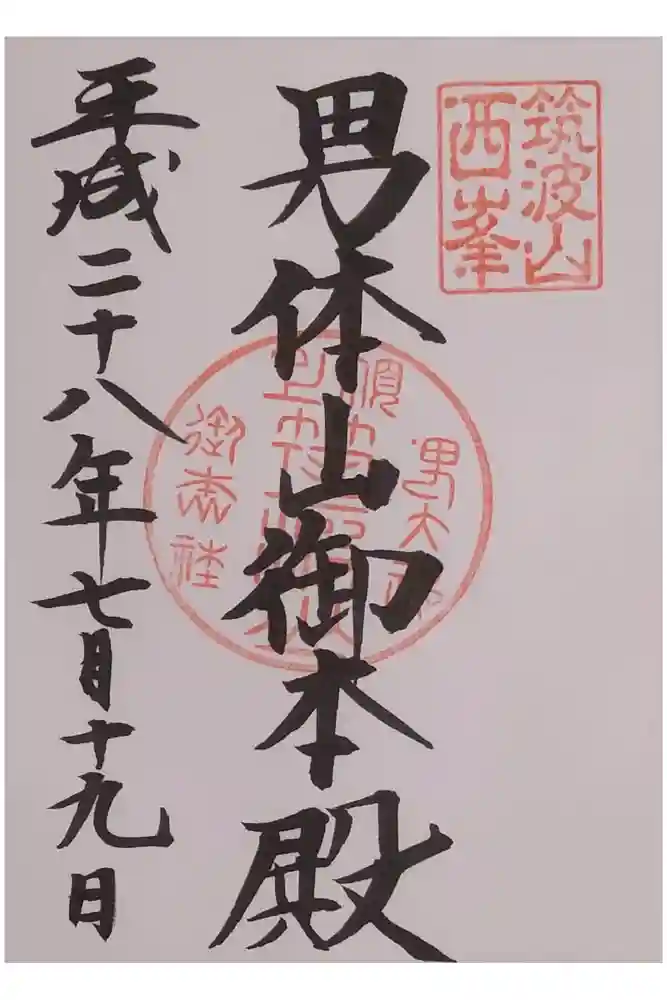 筑波山
西峯
男体山御本殿
平成二十八年七月十九日
御本社